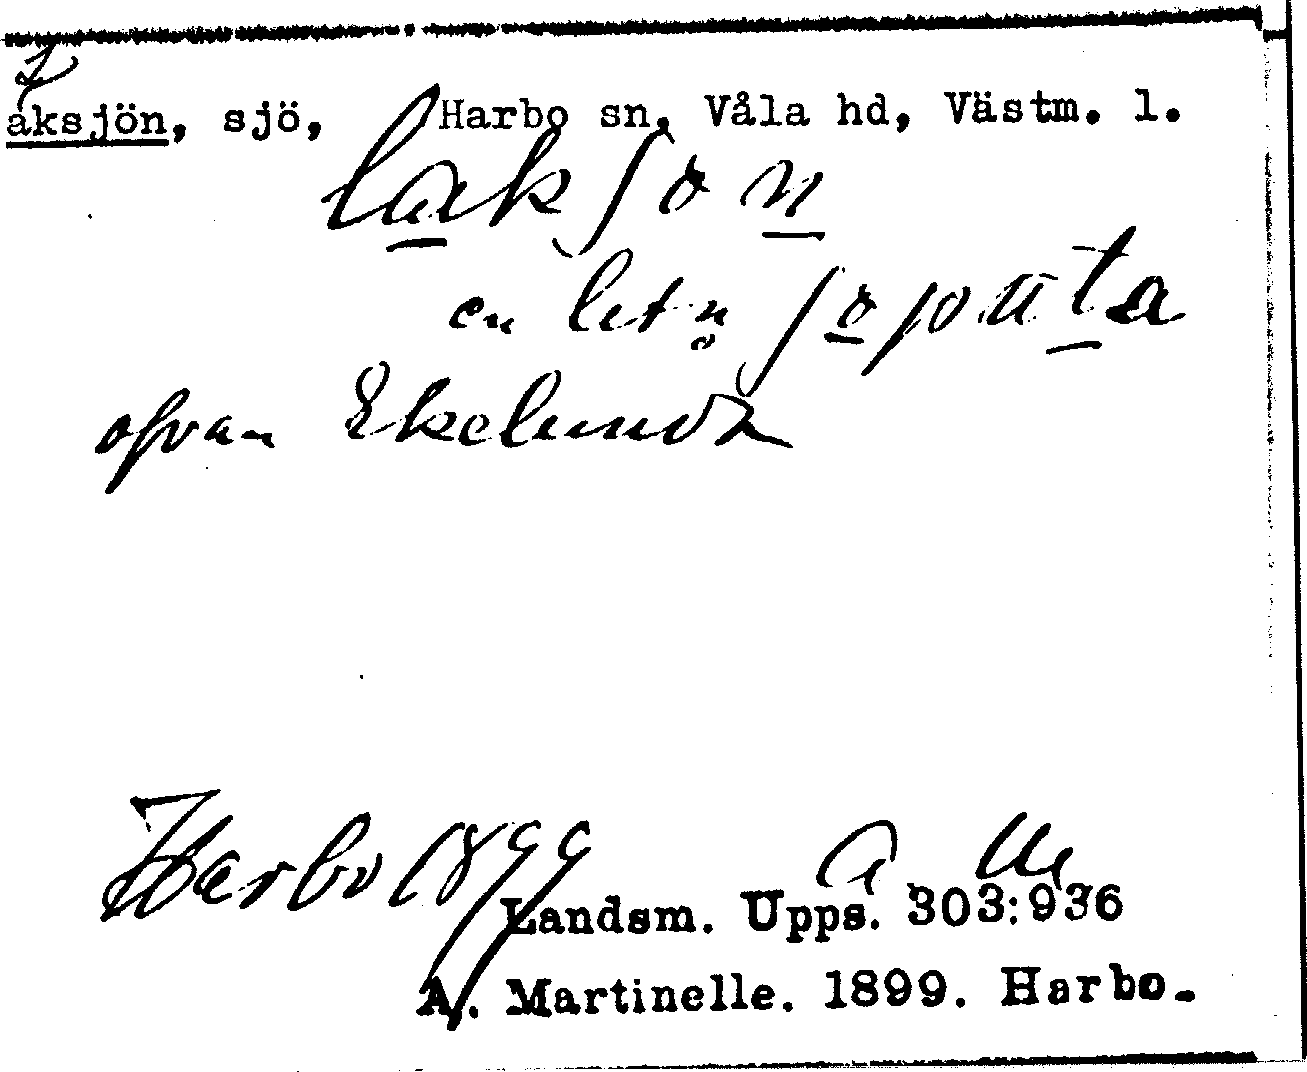 Laksjön, sjö, Harbo sn, Våla hd, Västm. l.
laksjon
en let n sjoputa
ofvan Ekelund
Harbo 1899 A. M
Landsm. Upps. 303:936
A. Martinelle. 1899. Harbo.